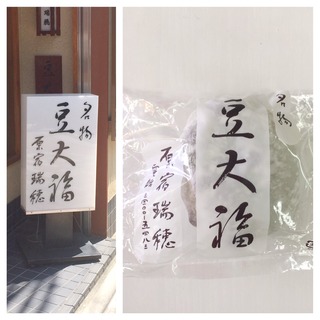 名物
豆大福
原宿瑞穂
名物
豆大福
原宿瑞穂